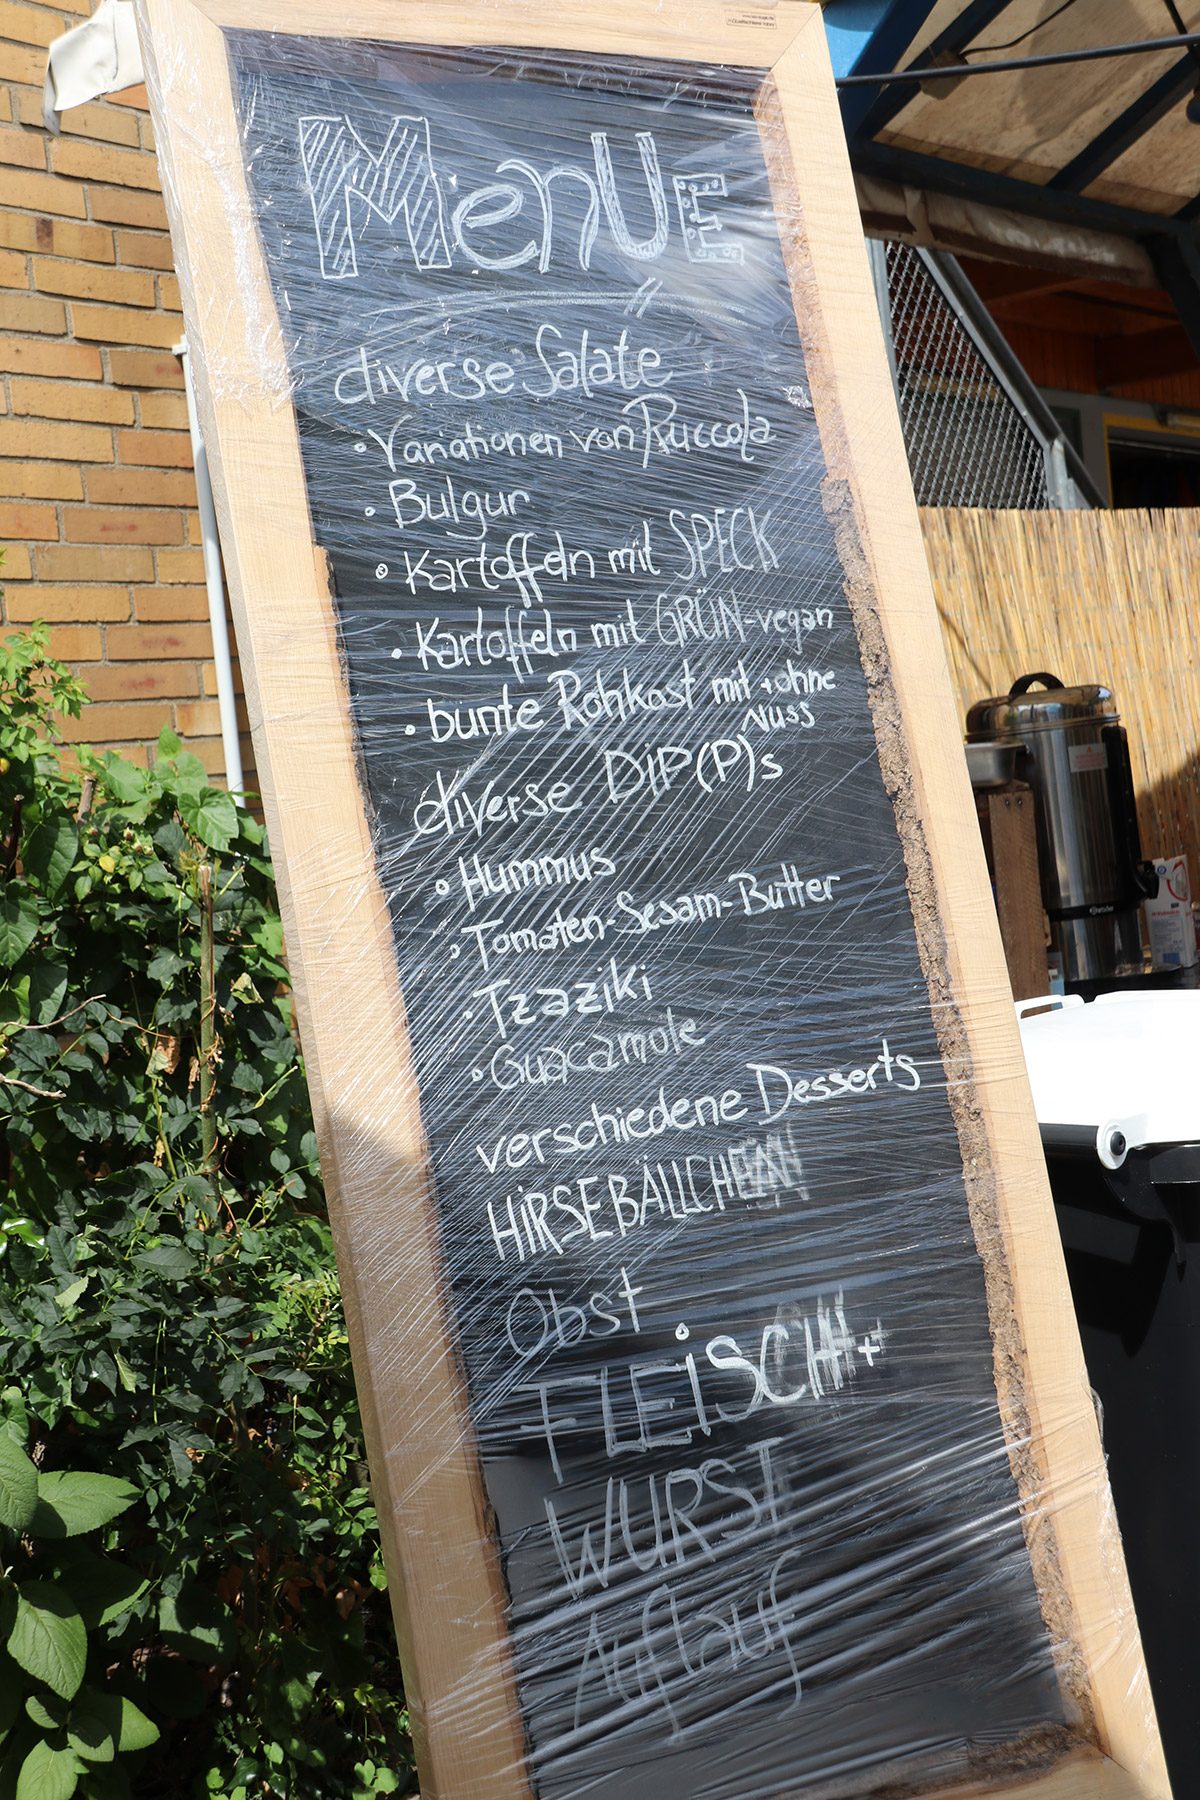 MenUE
diverse Salate
• Variationen von Ruccola
• Bulgur
• Kartoffeln mit SPECK
• Kartoffeln mit GRÜN-vegan
• bunte Rohkost mit + ohne
Nuss
diverse DiP(P)s
• Hummus
• Tomaten-Sesam-Butter
• Tzaziki
• Guacamole
verschiedene Desserts
HiRSEBÄLLCHEN
Obst
FLEiSCH +
WURST
Auflauf